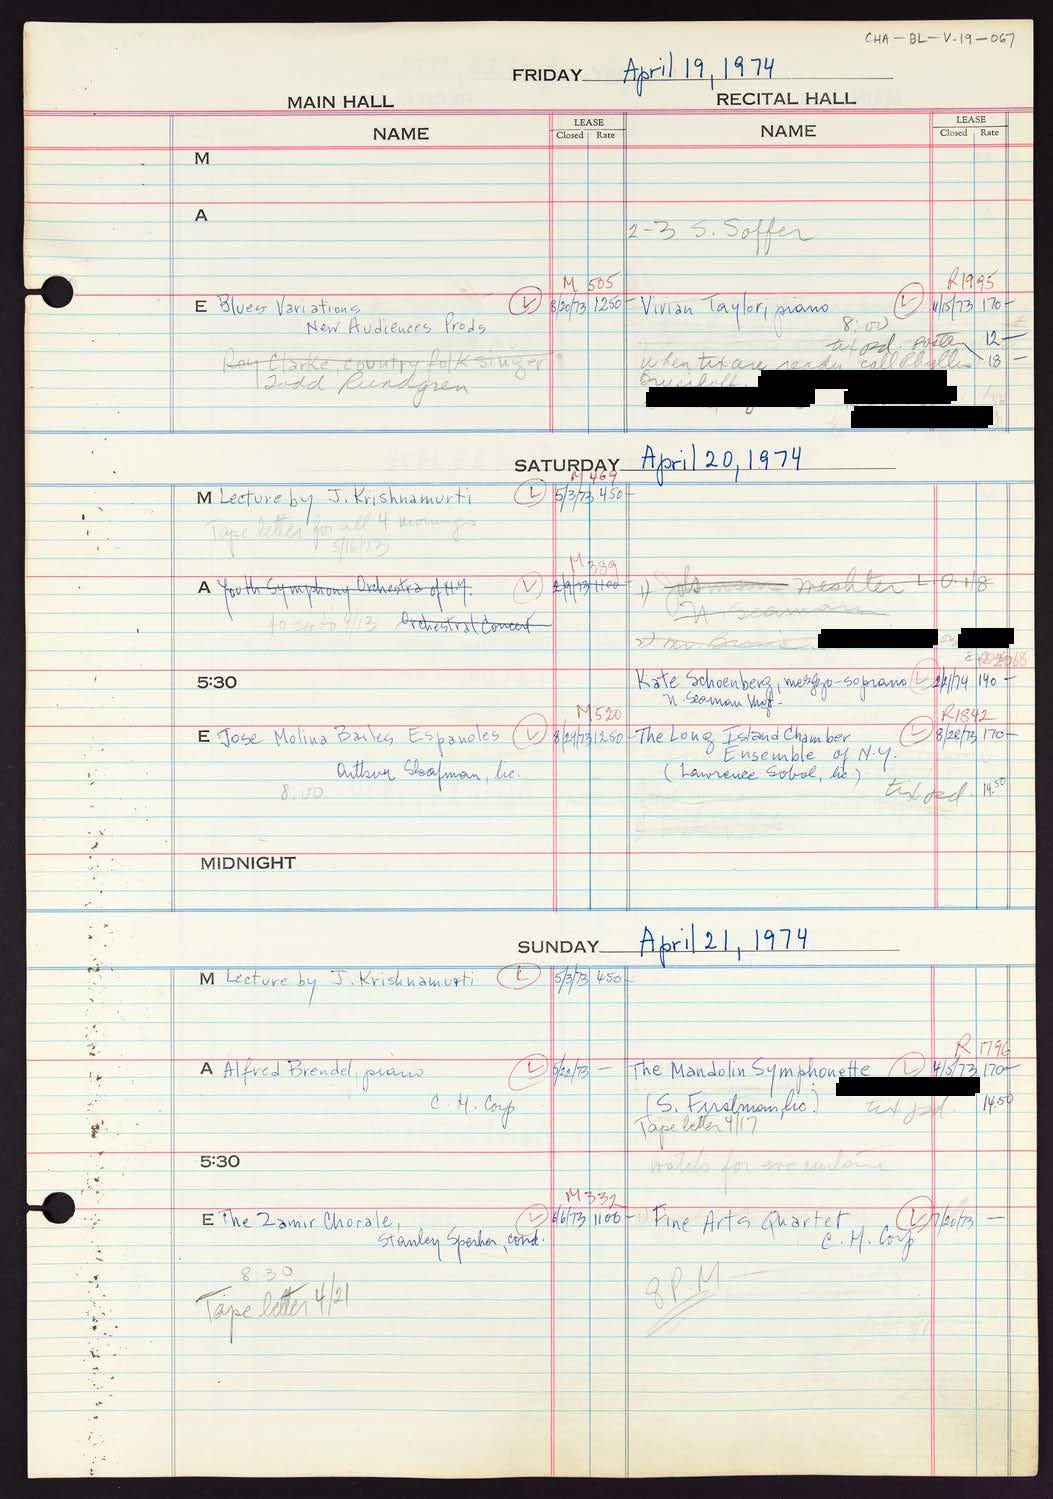 CHA-BL-V-19-067
FRIDAY April 19, 1974
MAIN HALL RECITAL HALL
NAME LEASE Closed Rate NAME LEASE Closed Rate
M
A
2-3 S. Soffer
M 505 R1995
E Blues Variations L 8/20/73 1250- Vivian Taylor, piano L 11/15/73 170-
New Audiences Prods 8:00
tix pd. 12-
Roy Clarke, country folk singer when tix are ready call Phyllis 18-
Todd Rundgren
SATURDAY April 20, 1974
M 469
M Lecture by J. Krishnamurti L 5/3/73 450-
Tape letter for all 4 mornings
5/16/73
M 389
A Youth Symphony Orchestra of N.Y. L 2/9/73 1100- 1) Meshter L.O. 1/8
Orchestral Concert N Seaman
2)
5:30 Kate Schoenberg, mezzo-soprano L 2/2/74 140-
N. Seaman Mgt.
M520 R1842
E Jose Molina Bailes Espanoles L 8/24/73 1250- The Long Island Chamber L 8/28/73 170-
Ensemble of N.Y.
Arthur Shafman, Inc. (Lawrence Sobol, Inc)
8:00 tix pd. 14.50
MIDNIGHT
SUNDAY April 21, 1974
M Lecture by J. Krishnamurti L 5/3/73 450-
R 1796
A Alfred Brendel, piano L 5/22/73 - The Mandolin Symphonette L 4/5/73 170-
C. H. Corp (S. Firstman, Inc.) tix pd. 14.50
Tape letter 4/17
5:30 watch for
M332
E The Zamir Chorale, L 6/6/73 1100- Fine Arts Quartet L 7/20/73 -
Stanley Sperber, cond. C. H. Corp
8:30 8 P.M-
Tape letter 4/21